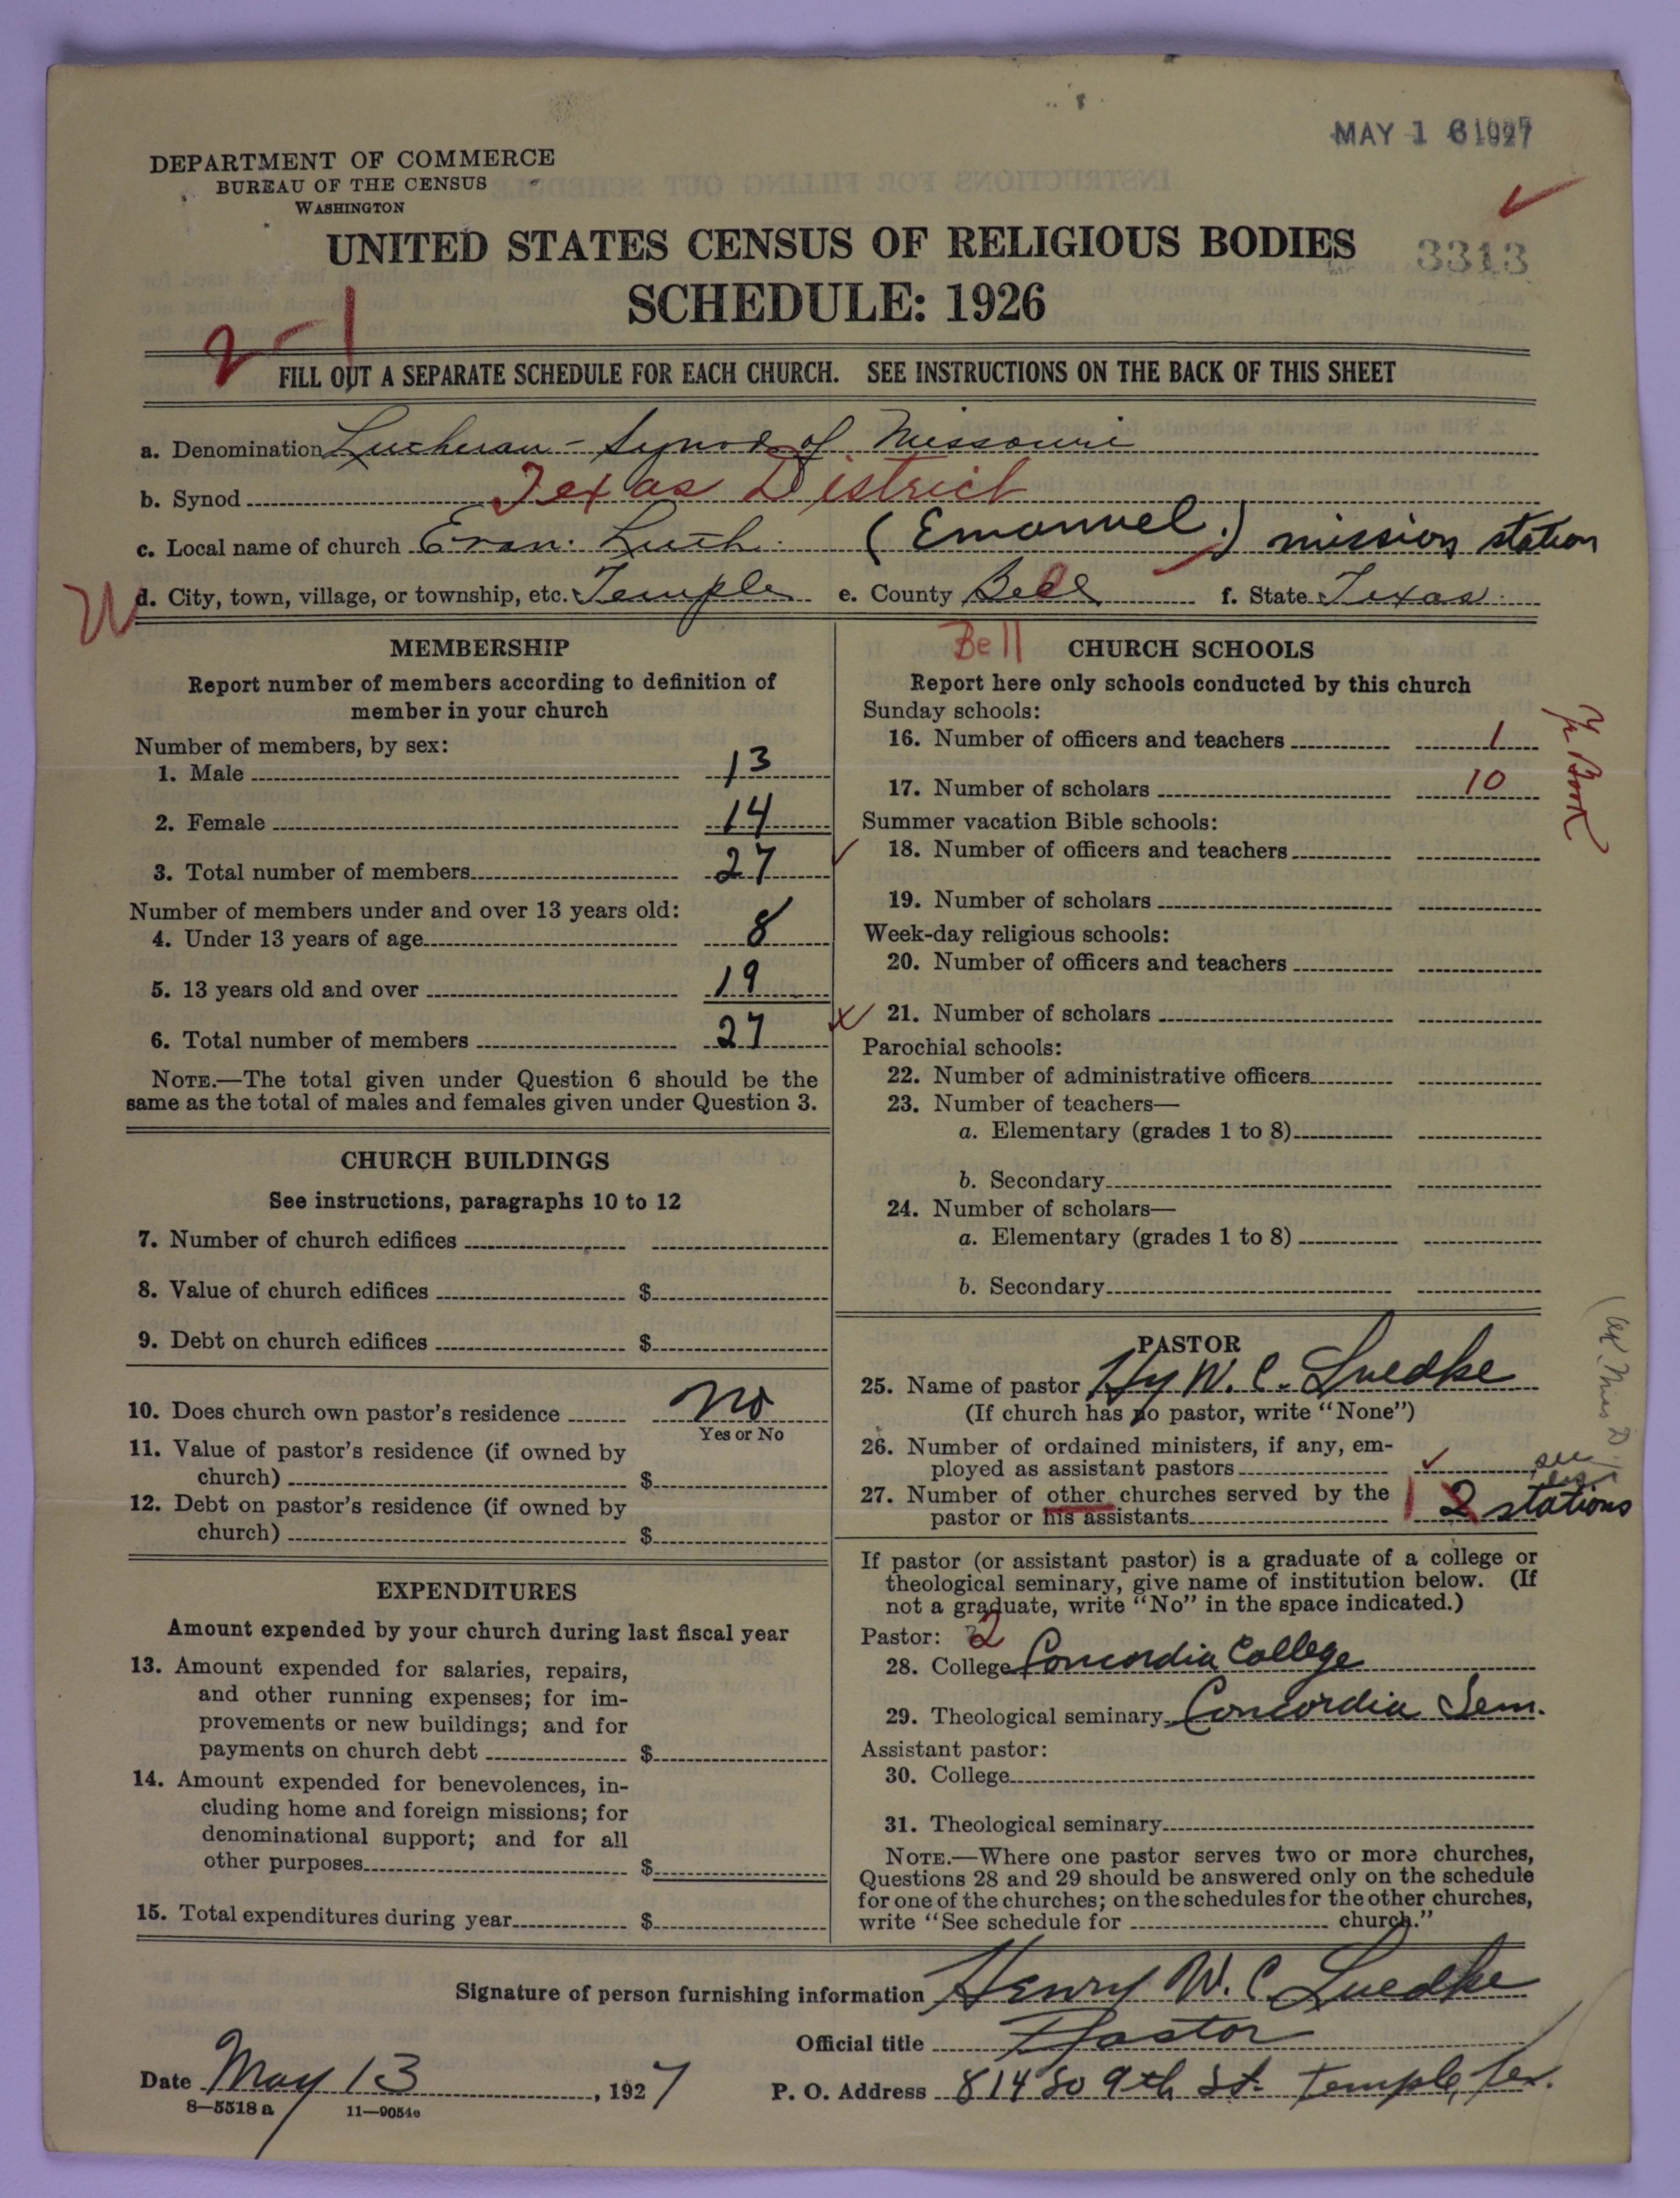 MAY 1 6 1927
DEPARTMENT OF COMMERCE
BUREAU OF THE CENSUS
WASHINGTON
UNITED STATES CENSUS OF RELIGIOUS BODIES
3313
SCHEDULE: 1926
2-1
FILL OUT A SEPARATE SCHEDULE FOR EACH CHURCH. SEE INSTRUCTIONS ON THE BACK OF THIS SHEET
a. Denomination Lutheran - Synod of Missouri
b. Synod Texas District
c. Local name of church Evan. Luth. (Emanuel.) mission station
d. City, town, village, or township, etc. Temple e. County Bell f. State Texas.
MEMBERSHIP
Report number of members according to definition of
member in your church
Number of members, by sex:
1. Male 13
2. Female 14
3. Total number of members 27
Number of members under and over 13 years old:
4. Under 13 years of age 8
5. 13 years old and over 19
6. Total number of members 27
NOTE.—The total given under Question 6 should be the
same as the total of males and females given under Question 3.
CHURCH BUILDINGS
See instructions, paragraphs 10 to 12
7. Number of church edifices
8. Value of church edifices $
9. Debt on church edifices $
10. Does church own pastor's residence No
Yes or No
11. Value of pastor's residence (if owned by
church) $
12. Debt on pastor's residence (if owned by
church) $
EXPENDITURES
Amount expended by your church during last fiscal year
13. Amount expended for salaries, repairs,
and other running expenses; for im-
provements or new buildings; and for
payments on church debt $
14. Amount expended for benevolences, in-
cluding home and foreign missions; for
denominational support; and for all
other purposes $
15. Total expenditures during year $
Bell
CHURCH SCHOOLS
Report here only schools conducted by this church
Sunday schools:
16. Number of officers and teachers 1
17. Number of scholars 10
Yr Book
Summer vacation Bible schools:
18. Number of officers and teachers
19. Number of scholars
Week-day religious schools:
20. Number of officers and teachers
21. Number of scholars
Parochial schools:
22. Number of administrative officers
23. Number of teachers—
a. Elementary (grades 1 to 8)
b. Secondary
24. Number of scholars—
a. Elementary (grades 1 to 8)
b. Secondary
PASTOR
25. Name of pastor Hy W. C. Luedke
(If church has no pastor, write "None")
26. Number of ordained ministers, if any, em-
ployed as assistant pastors
27. Number of other churches served by the
pastor or his assistants 1 2 stations
see
If pastor (or assistant pastor) is a graduate of a college or
theological seminary, give name of institution below. (If
not a graduate, write "No" in the space indicated.)
Pastor: 2
28. College Concordia College
29. Theological seminary Concordia Sem.
Assistant pastor:
30. College
31. Theological seminary
NOTE.—Where one pastor serves two or more churches,
Questions 28 and 29 should be answered only on the schedule
for one of the churches; on the schedules for the other churches,
write "See schedule for church."
Signature of person furnishing information Henry W. C. Luedke
Official title Pastor
Date May 13, 1927 P. O. Address 814 So 9th St. Temple, Tex.
8—5518 a 11—9054e